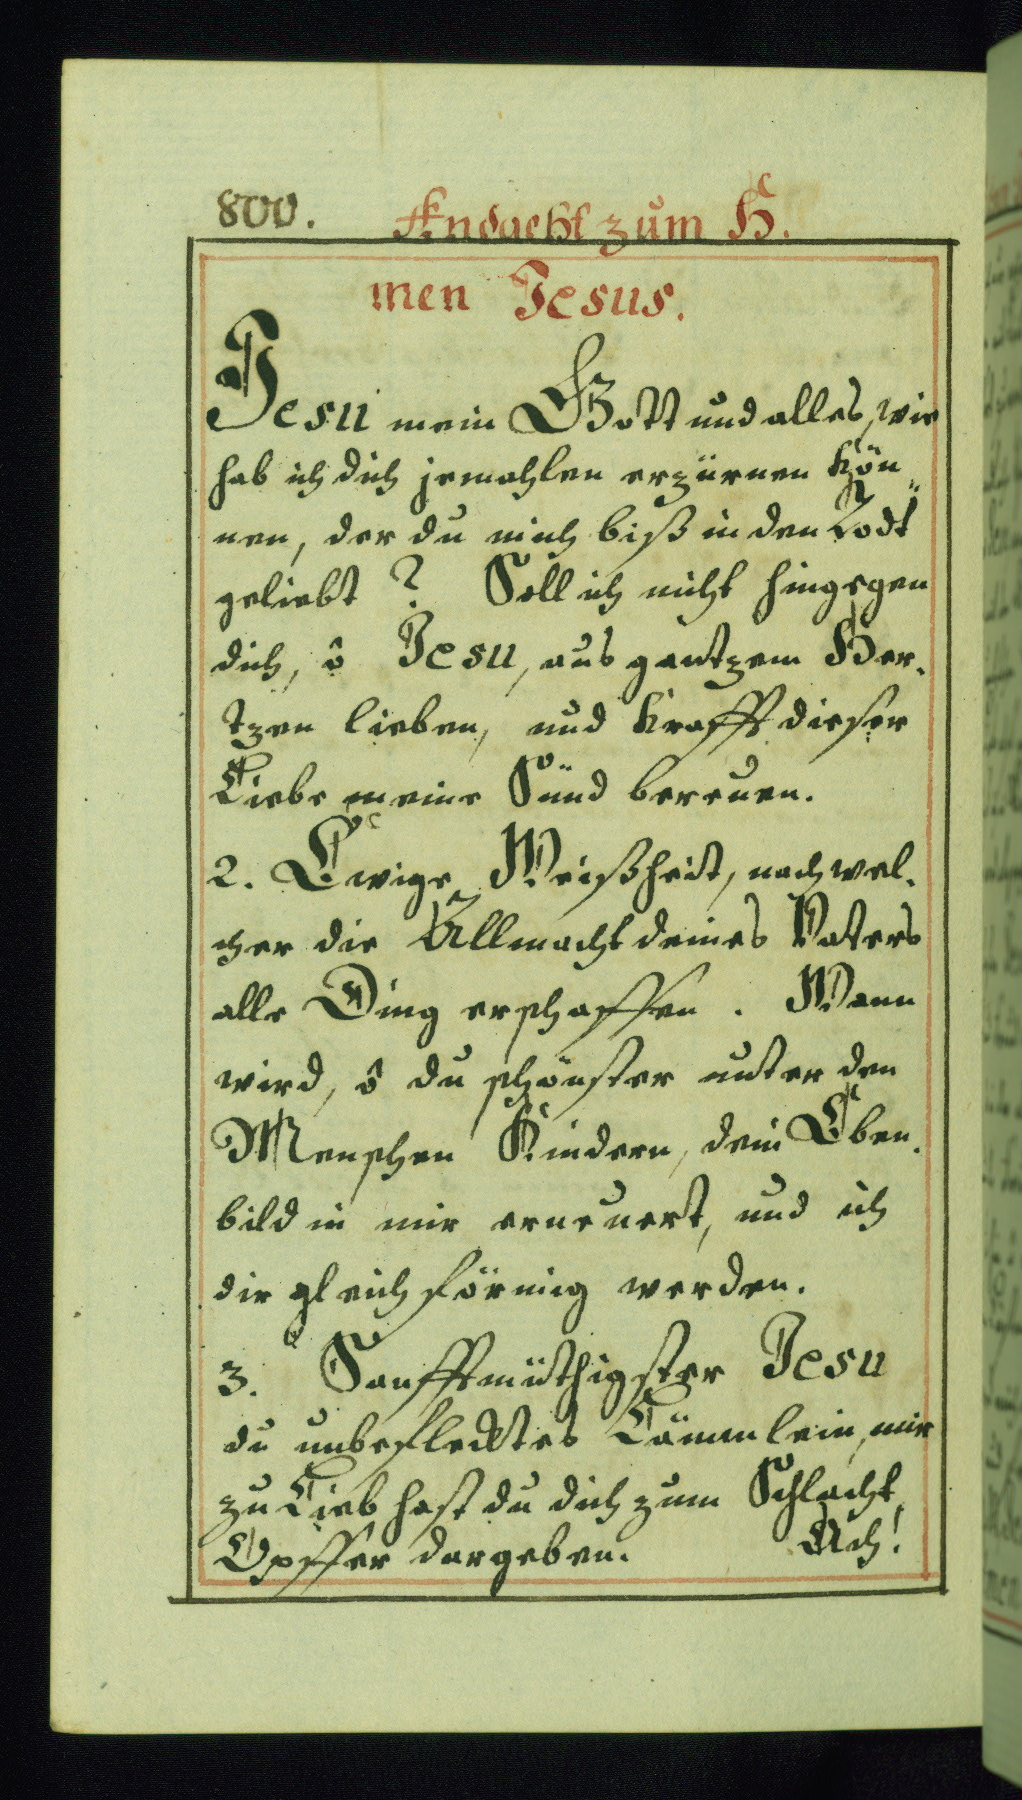 800. Andacht zum H.
men Jesus.
Jesu mein Gott und alles, wie
hab ich dich jemahlen erzürnen kön„
nen, der du mich biß in den Todt
geliebt? Soll ich nicht hingegen
dich, ô Jesu, aus gantzem Her„
tzen lieben, und krafft dieser
Liebe meine Sünd bereuen.
2. Ewige Weißheit, nach wel„
cher die Allmacht deines Vaters
alle Ding erschaffen. Wann
wird, ô du schönster unter den
Menschen Kindern, dein Eben„
bild in mir erneuert, und ich
dir gleichförmig werden.
3. Sanfftmüthigster Jesu
du unbeflecktes Lämmlein, mir
zu Lieb hast du dich zum Schlacht„
Opffer dargeben. Ach!